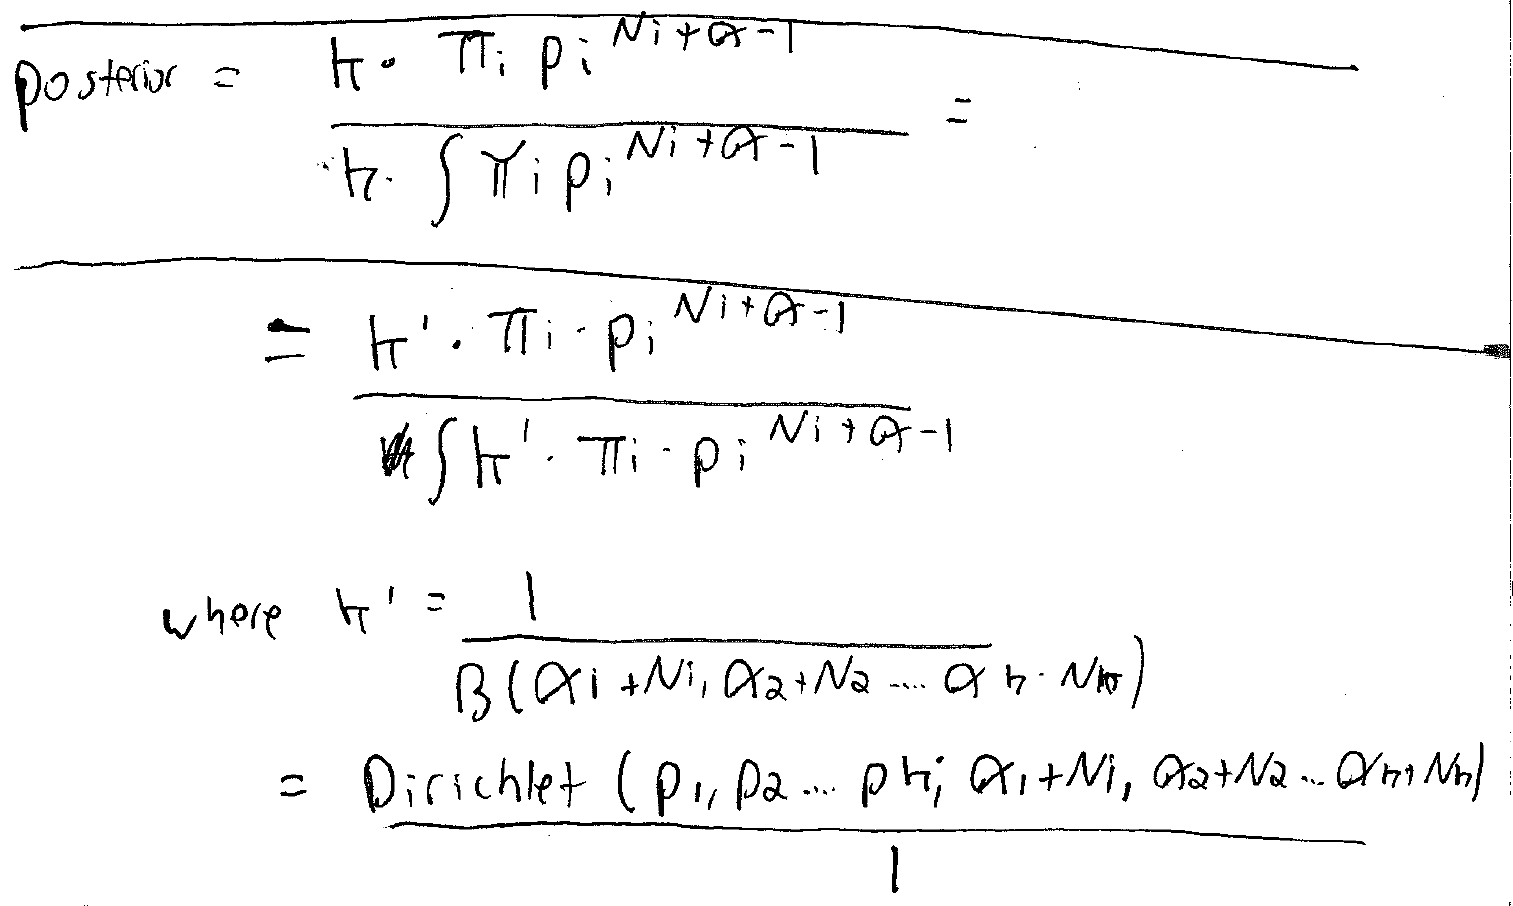 posterior = k · πi pi^(Ni+α-1) / k · ∫ πi pi^(Ni+α-1) =
= k' · πi · pi^(Ni+α-1) / ∫ k' · πi · pi^(Ni+α-1)
where k' = 1 / B(αi+Ni, α2+N2 .... αk · Nk)
= Dirichlet (p1, p2 .... pk; α1+Ni, α2+N2 ... αk+Nk) / 1